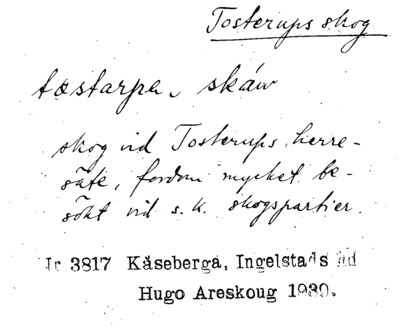 Tosterups skog
tostarpa skáw
skog vid Tosterups herre-
säte, fordom mycket be-
sökt vid s. k. skogspartier.
Ir 3817 Kåseberga, Ingelstads hd
Hugo Areskoug 1930.